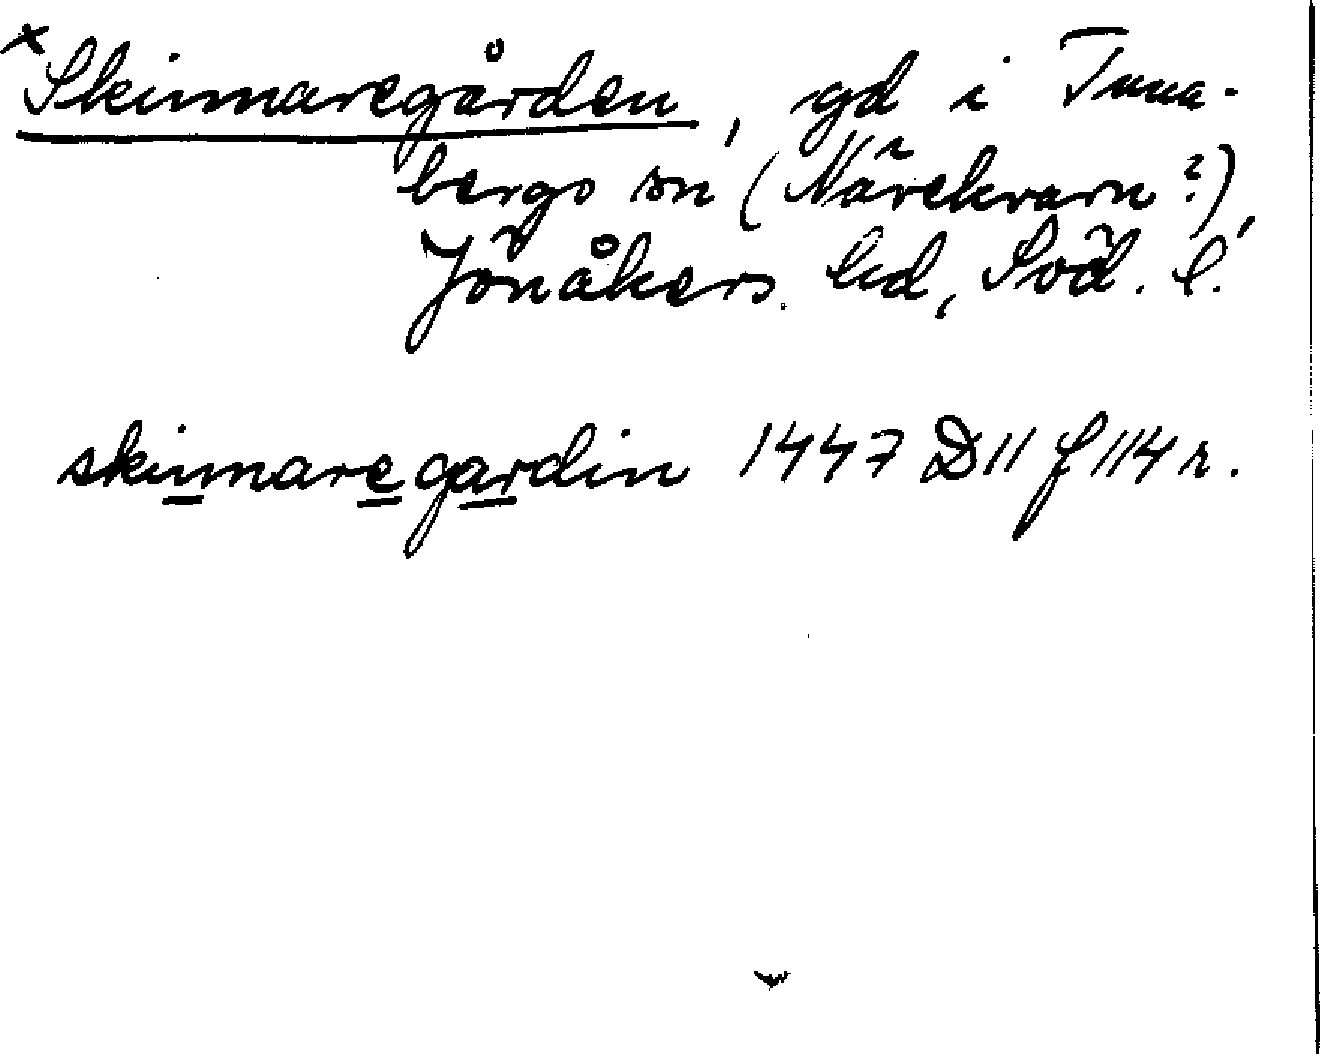 x Skinnaregården, gd i Tuna-
bergs sn (Nävekvarn?),
Jönåkers hd, Söd. l.
skinnaregardin 1447 D11 f 114 r.